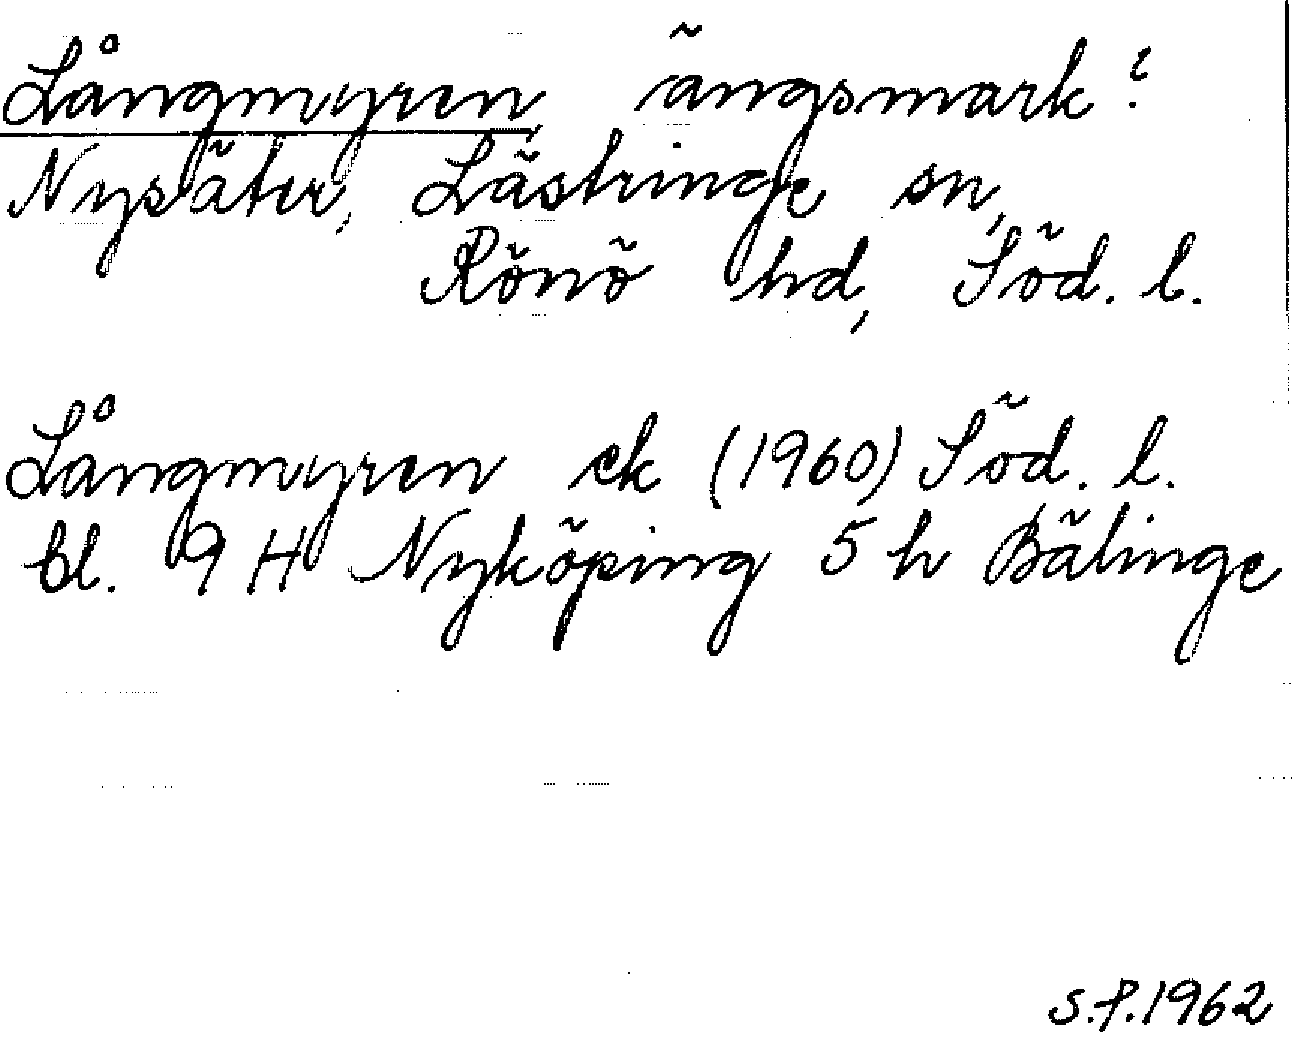 Långmyren, ängsmark?
Nysäter, Lästringe sn,
Rönö hd, Söd. l.
Långmyren ek (1960) Söd. l.
bl. 9 H Nyköping 5 h Bälinge
S.P.1962